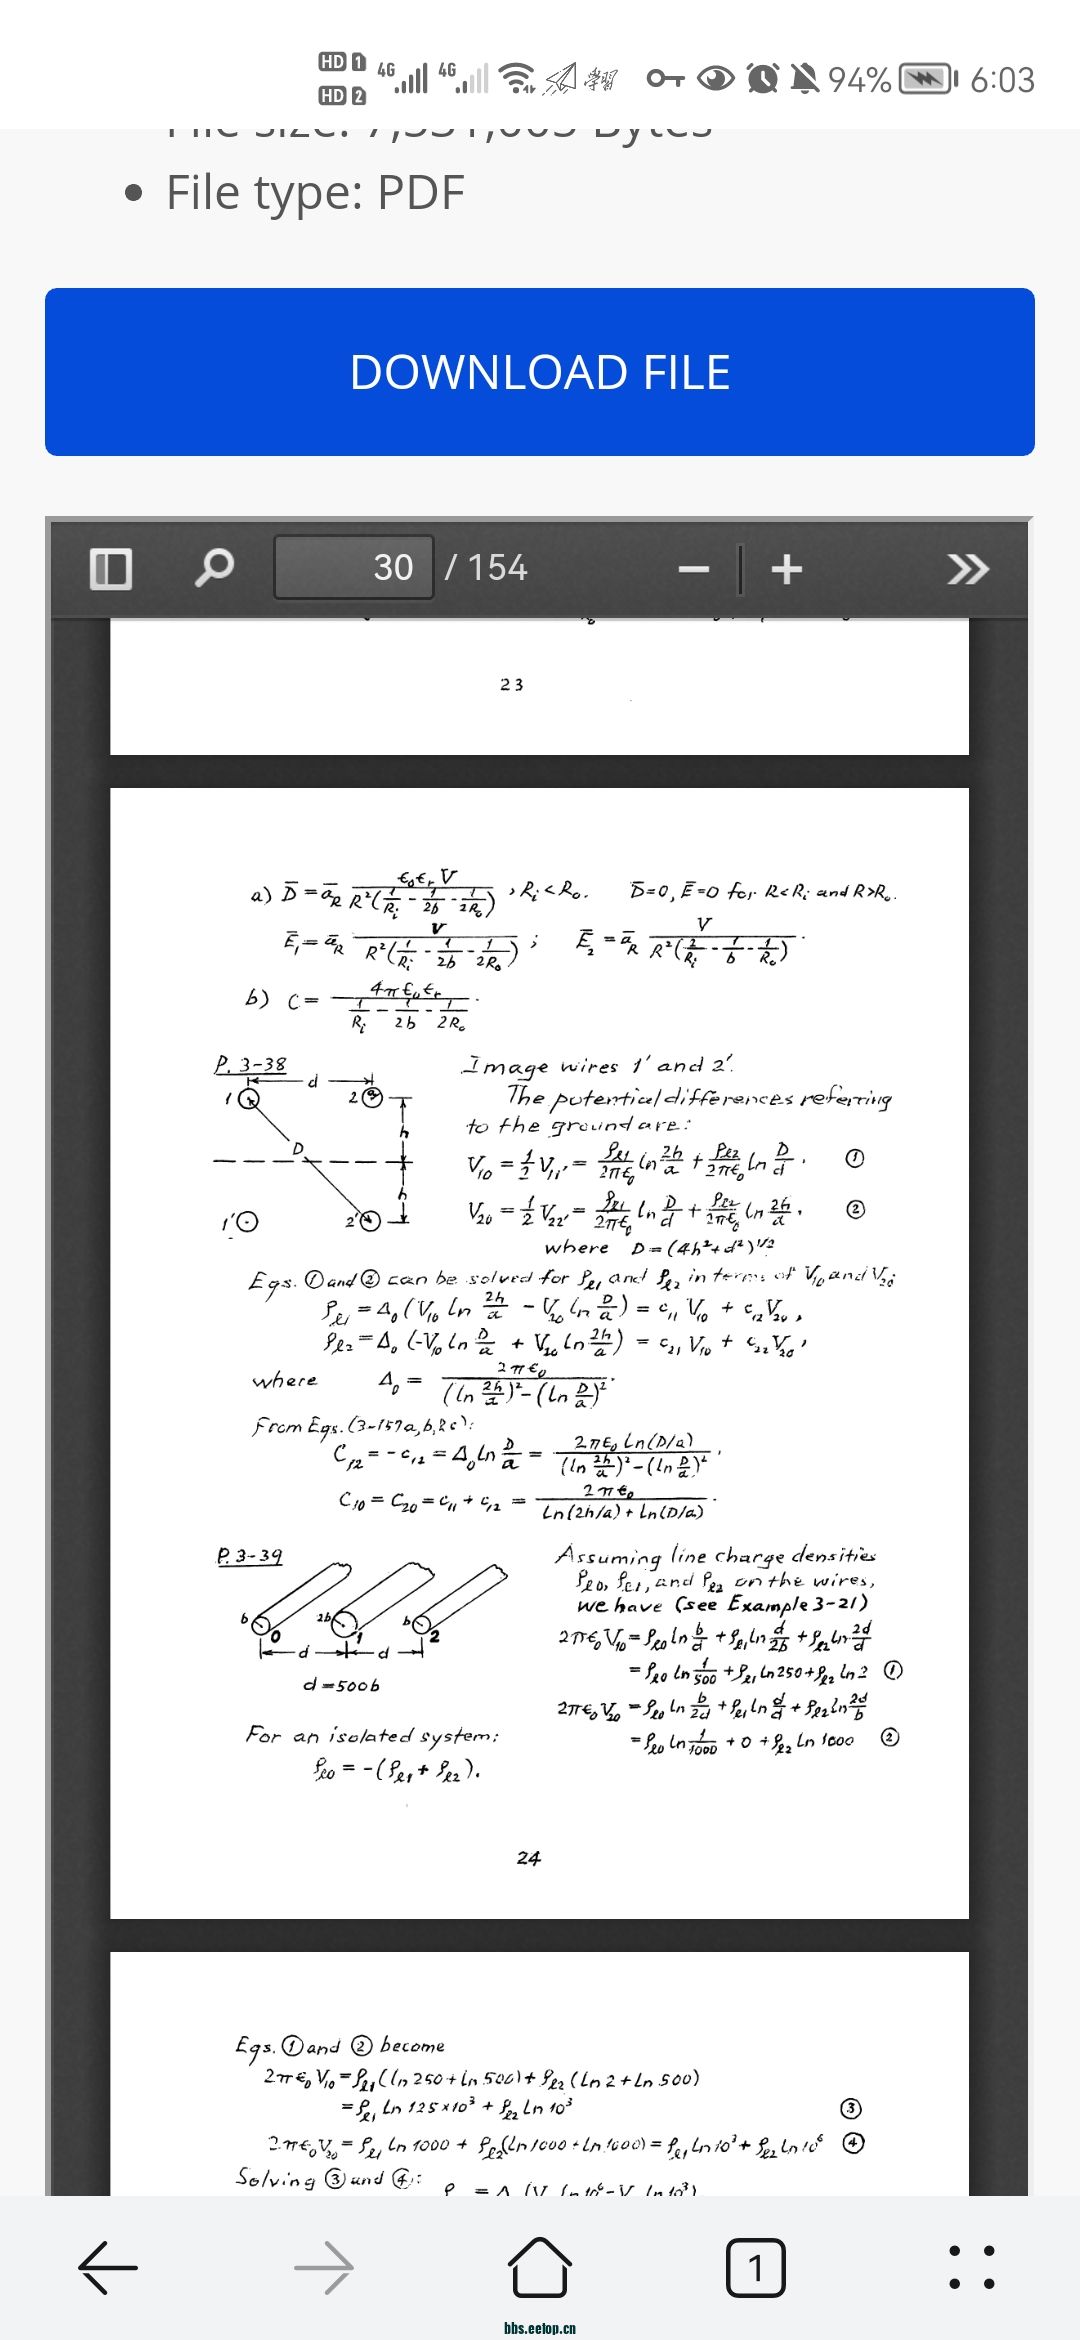 HD 1 4G 4G 94% 6:03
HD 2
• File type: PDF
DOWNLOAD FILE
30 / 154
23
a) D̄ = ā_R ε₀ε_r V / R²(1/R_i - 1/2b - 1/2R_o) , R_i < R_o. D̄=0, Ē=0 for R<R_i and R>R_o.
Ē₁ = ā_R V / R²(1/R_i - 1/2b - 1/2R_o) ; Ē₂ = ā_R V / R²(2/R_i - 1/b - 1/R_o) .
b) C = 4πε₀ε_r / (1/R_i - 1/2b - 1/2R_o) .
P. 3-38
d
1 2
D h
h
1' 2'
Image wires 1' and 2'.
The potential differences referring
to the ground are:
V₁₀ = ½ V₁₁' = ρ_ℓ1/2πε₀ ln 2h/a + ρ_ℓ2/2πε₀ ln D/d . ①
V₂₀ = ½ V₂₂' = ρ_ℓ1/2πε₀ ln D/d + ρ_ℓ2/2πε₀ ln 2h/a . ②
where D = (4h²+d²)^1/2
Eqs. ① and ② can be solved for ρ_ℓ1 and ρ_ℓ2 in terms of V₁₀ and V₂₀:
ρ_ℓ1 = Δ₀ (V₁₀ ln 2h/a - V₂₀ ln D/a) = c₁₁ V₁₀ + c₁₂ V₂₀ ,
ρ_ℓ2 = Δ₀ (-V₁₀ ln D/a + V₂₀ ln 2h/a) = c₂₁ V₁₀ + c₂₂ V₂₀ ,
where Δ₀ = 2πε₀ / (ln 2h/a)² - (ln D/a)² .
From Eqs. (3-157a, b, & c):
C₁₂ = -c₁₂ = Δ₀ ln D/a = 2πε₀ ln(D/a) / (ln 2h/a)² - (ln D/a)² ,
C₁₀ = C₂₀ = c₁₁ + c₁₂ = 2πε₀ / ln(2h/a) + ln(D/a) .
P. 3-39
b 2b b
0 1 2
d d
d = 500b
For an isolated system:
ρ_ℓ0 = -(ρ_ℓ1 + ρ_ℓ2).
Assuming line charge densities
ρ_ℓ0, ρ_ℓ1, and ρ_ℓ2 on the wires,
we have (see Example 3-21)
2πε₀V₁₀ = ρ_ℓ0 ln b/d + ρ_ℓ1 ln d/2b + ρ_ℓ2 ln 2d/d
= ρ_ℓ0 ln 1/500 + ρ_ℓ1 ln 250 + ρ_ℓ2 ln 2 ①
2πε₀V₂₀ = ρ_ℓ0 ln b/2d + ρ_ℓ1 ln d/d + ρ_ℓ2 ln 2d/b
= ρ_ℓ0 ln 1/1000 + 0 + ρ_ℓ2 ln 1000 ②
24
Eqs. ① and ② become
2πε₀V₁₀ = ρ_ℓ1 (ln 250 + ln 500) + ρ_ℓ2 (ln 2 + ln 500)
= ρ_ℓ1 ln 125×10³ + ρ_ℓ2 ln 10³ ③
2πε₀V₂₀ = ρ_ℓ1 ln 1000 + ρ_ℓ2 (ln 1000 + ln 1000) = ρ_ℓ1 ln 10³ + ρ_ℓ2 ln 10⁶ ④
Solving ③ and ④:
1
bbs.eetop.cn